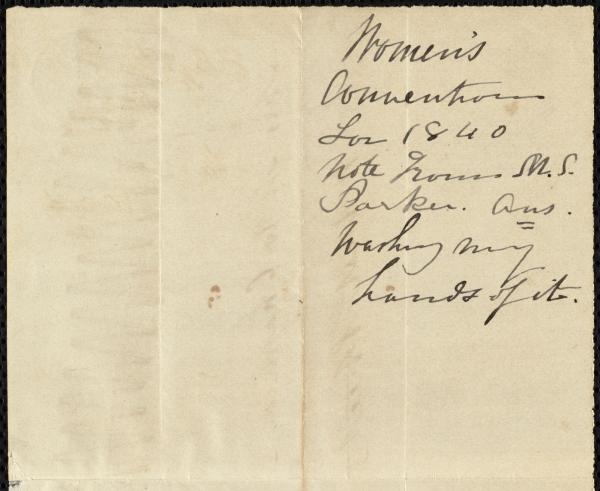 Women's
Convention
for 1840
Note from M. S.
Parker. Ans.
Washing my
hands of it.